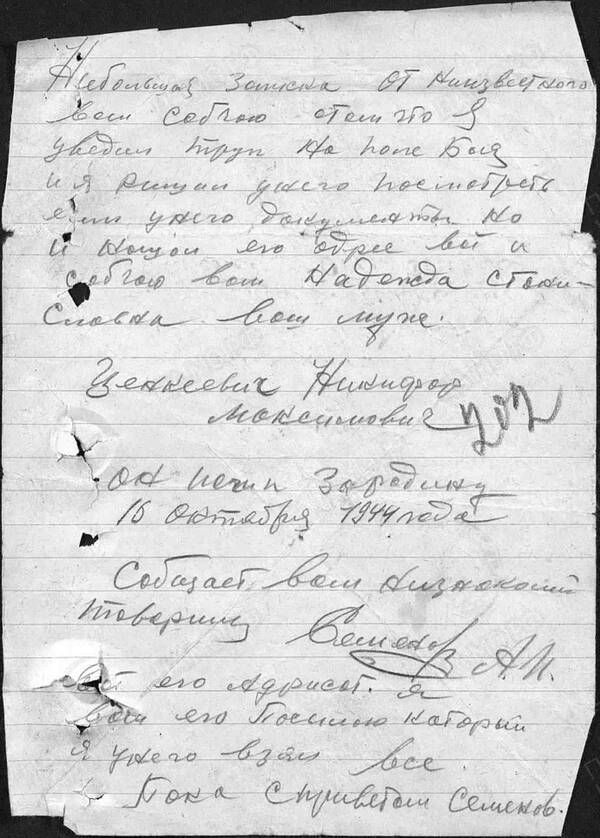 Небольшая записка от ниизвестного
вам собчою отом что я
уведил труп на поле боя
и я ришил унего посмотреть
если унего документы но
и нашол его адрес вот и
собчою вам Надежда Стони-
словна ваш муж.
Ценкеевич Никифор
Максимович 202
он погип Зародину
16 октября 1944 года
Собщает вам низнакомый
товарищ Семенов А.П.
вот его адрисат. я
вам его посилаю каторый
я унего взял все.
Пока с приветом Семенов.